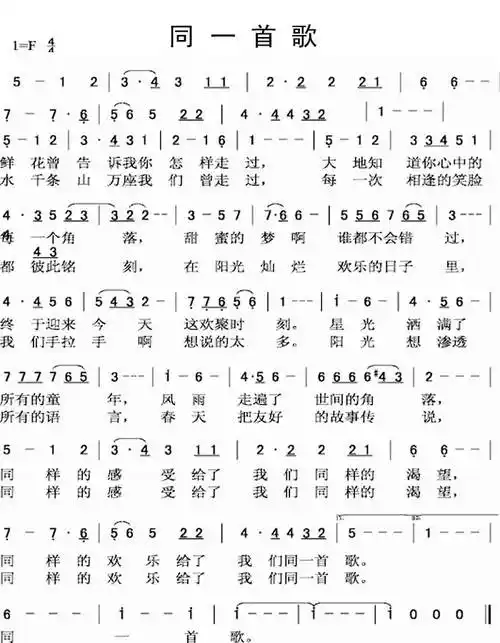 同一首歌
1=F 4/4
5 - 1 2 | 3·4 3 11 | 2·2 2 21 | 6 6-- |
7 - 7·6 | 565 22 | 4·4432 | 1--- |
5 - 12 | 3·431 | 2-16 | 5--- | 5-12 | 33451 |
鲜花曾告诉我你怎样走过， 大地知道你心中的
水千条山万座我们曾走过， 每一次相逢的笑脸
4·3523 | 322· | 3-57 | 7·66· | 556765 |
每一个角落， 甜蜜的梦啊 谁都不会错过，
4 3
都彼此铭刻， 在阳光灿烂 欢乐的日子里，
4·456 | 5432· | 77656 | 1--- | 1-6 | 4·56 |
终于迎来今天 这欢聚时刻。 星光洒满了
我们手拉手啊 想说的太多。 阳光想渗透
777765 | 3--- | 1-6 | 4·56 | 66666#43 | 2--- |
所有的童年， 风雨走遍了世间的角落，
所有的语言， 春天把友好的故事传说，
5 - 1 2 | 3·4 3 11 | 2·2 2 21 | 6 6-- |
同样的感受给了我们同样的渴望，
同样的感受给了我们同样的渴望，
7 - 7·6 | 565 22 | 4·4432 | 1--- | 5--- | 1--- |
1. 2.
同样的欢乐给了我们同一首歌。
同样的欢乐给了我们同一首歌。
6--- | --1 | 1--- | 1--- | 1000 ‖
同一首歌。